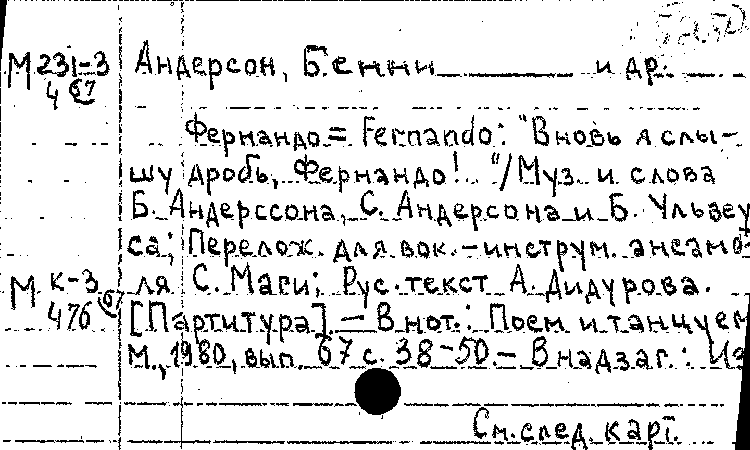 М 23i-3 Андерсон, Бенни и др.
4 67
Фернандо = Fernando: "Вновь я слы-
шу дробь, Фернандо! ."/Муз. и слова
Б. Андерссона, С. Андерсона и Б. Ульвеу
са; Перелож. для вок.-инструм. ансамб-
М к-3 ля С. Маги; Рус. текст А. Дидурова.
476 67 [Партитура]. - В нот.: Поем и танцуем
М., 1980, вып. 67 с. 38-50. - В надзаг.: Из
См. след. карт.